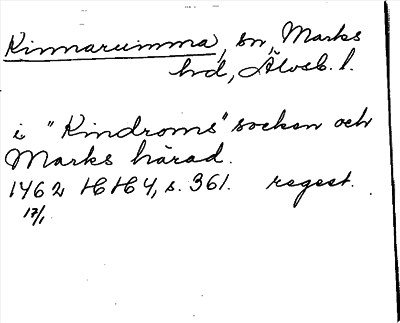 Kinnarumma, sn, Marks
hd, Älvsb. l.
i "Kindroms" socken och
Marks härad.
1462 HH 4, s. 361. regest.
17/1